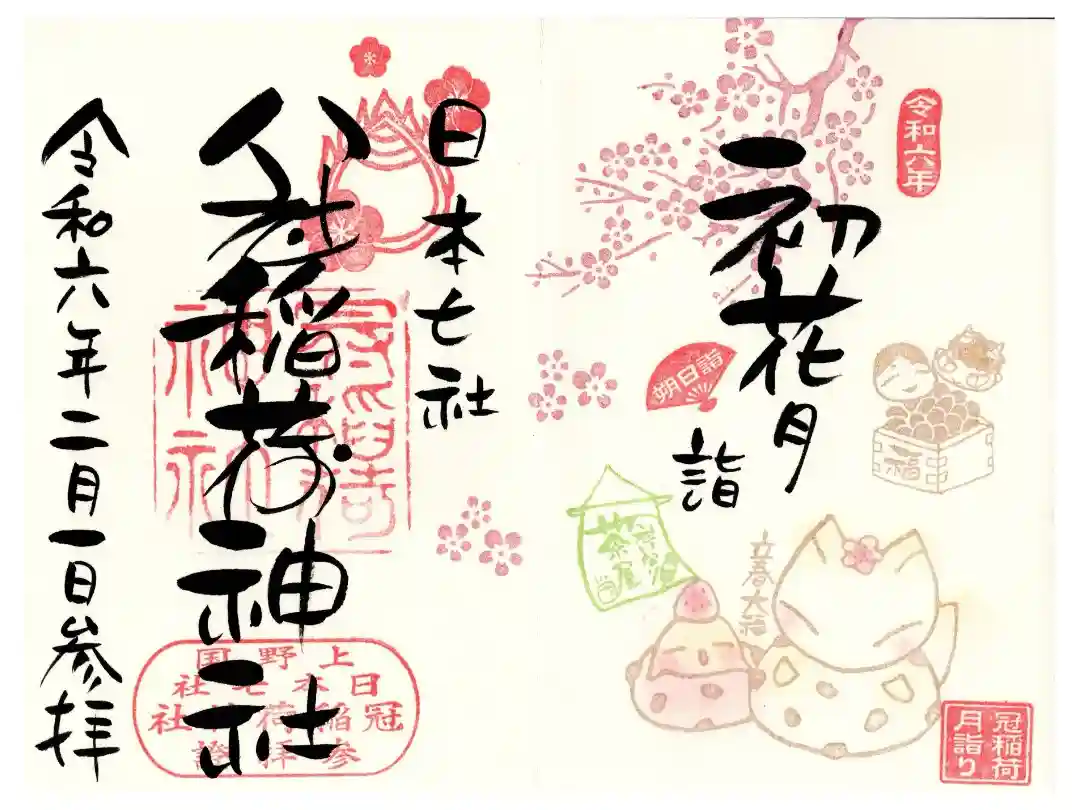 令和六年
初花月
朔日詣
詣
一福
茶屋
立春大福
冠稲荷
月詣り
日本七社
冠稲荷神社
上野国
日本七社
冠稲荷神社
参拝證
令和六年二月一日参拝